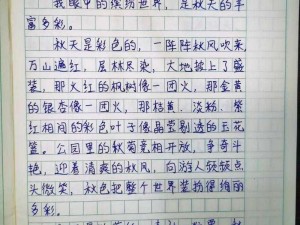 我眼中的缤纷世界，是秋天的丰
富多彩。
秋天是彩色的，一阵阵秋风吹来
万山遍红，层林尽染，大地披上了盛
装，那火红的枫树像一团火，那金黄
的银杏像一团火，那桔黄、淡粉、紫
红相间的彩色叶子像晶莹剔透的五花
筐。公园里的秋菊竞相开放，争奇斗
艳，迎着清爽的秋风，向游人频频点
头微笑，秋色把整个世界装扮得绚丽
多彩。